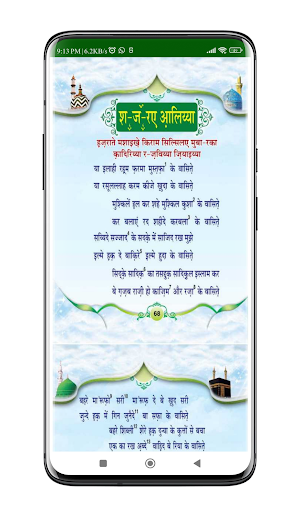 9:13 PM | 6.2KB/s
श-ज-रए आ़लिय्या
हज़राते मशाइख़े किराम सिल्सिलए मुबा-रका
क़ादिरिय्या र-ज़विय्या ज़ियाइय्या
या इलाही रह़्म फ़रमा मुस्त़फ़ा के वासित़े
या रसूलल्लाह करम कीजे ख़ुदा के वासित़े
मुश्किलें ह़ल कर शहे मुश्किल कुशा के वासित़े
कर बलाएं रद शहीदे करबला के वासित़े
सय्यिदे सज्जाद के सदक़े में साजिद रख मुझे
इ़ल्मे ह़क़ दे बाक़िरे इ़ल्मे हुदा के वासित़े
सिद्क़े सादिक़ का तसद्दुक़ सादिक़ुल इस्लाम कर
बे ग़ज़ब राज़ी हो काज़िम और रज़ा के वासित़े
68
बहरे मा'रूफ़ो सरी मा'रूफ़ दे बे ख़ुद सरी
जुन्दे ह़क़ में गिन जुनैदे बा सफ़ा के वासित़े
बहरे शिब्ली शेरे ह़क़ दुन्या के कुत्तों से बचा
एक का रख अ़ब्दे वाह़िद बे रिया के वासित़े